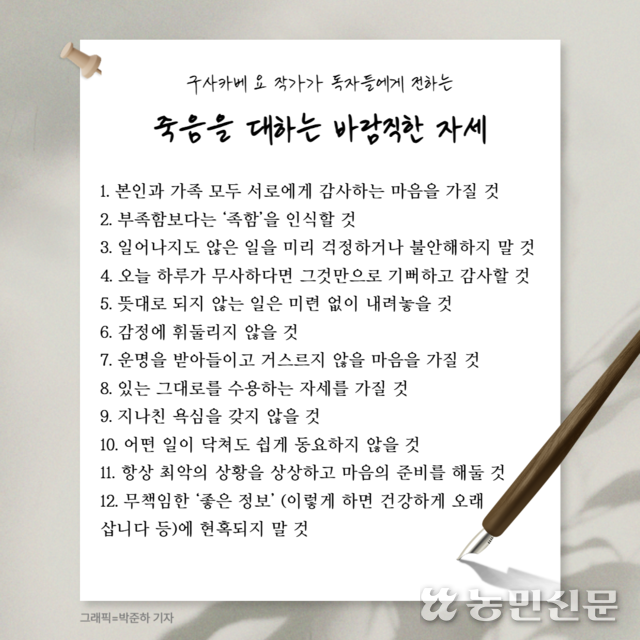 구사카베 요 작가가 독자들에게 전하는
죽음을 대하는 바람직한 자세
1. 본인과 가족 모두 서로에게 감사하는 마음을 가질 것
2. 부족함보다는 ‘족함’을 인식할 것
3. 일어나지도 않은 일을 미리 걱정하거나 불안해하지 말 것
4. 오늘 하루가 무사하다면 그것만으로 기뻐하고 감사할 것
5. 뜻대로 되지 않는 일은 미련 없이 내려놓을 것
6. 감정에 휘둘리지 않을 것
7. 운명을 받아들이고 거스르지 않을 마음을 가질 것
8. 있는 그대로를 수용하는 자세를 가질 것
9. 지나친 욕심을 갖지 않을 것
10. 어떤 일이 닥쳐도 쉽게 동요하지 않을 것
11. 항상 최악의 상황을 상상하고 마음의 준비를 해둘 것
12. 무책임한 ‘좋은 정보’ (이렇게 하면 건강하게 오래
삽니다 등)에 현혹되지 말 것
농민신문
그래픽=박준하 기자